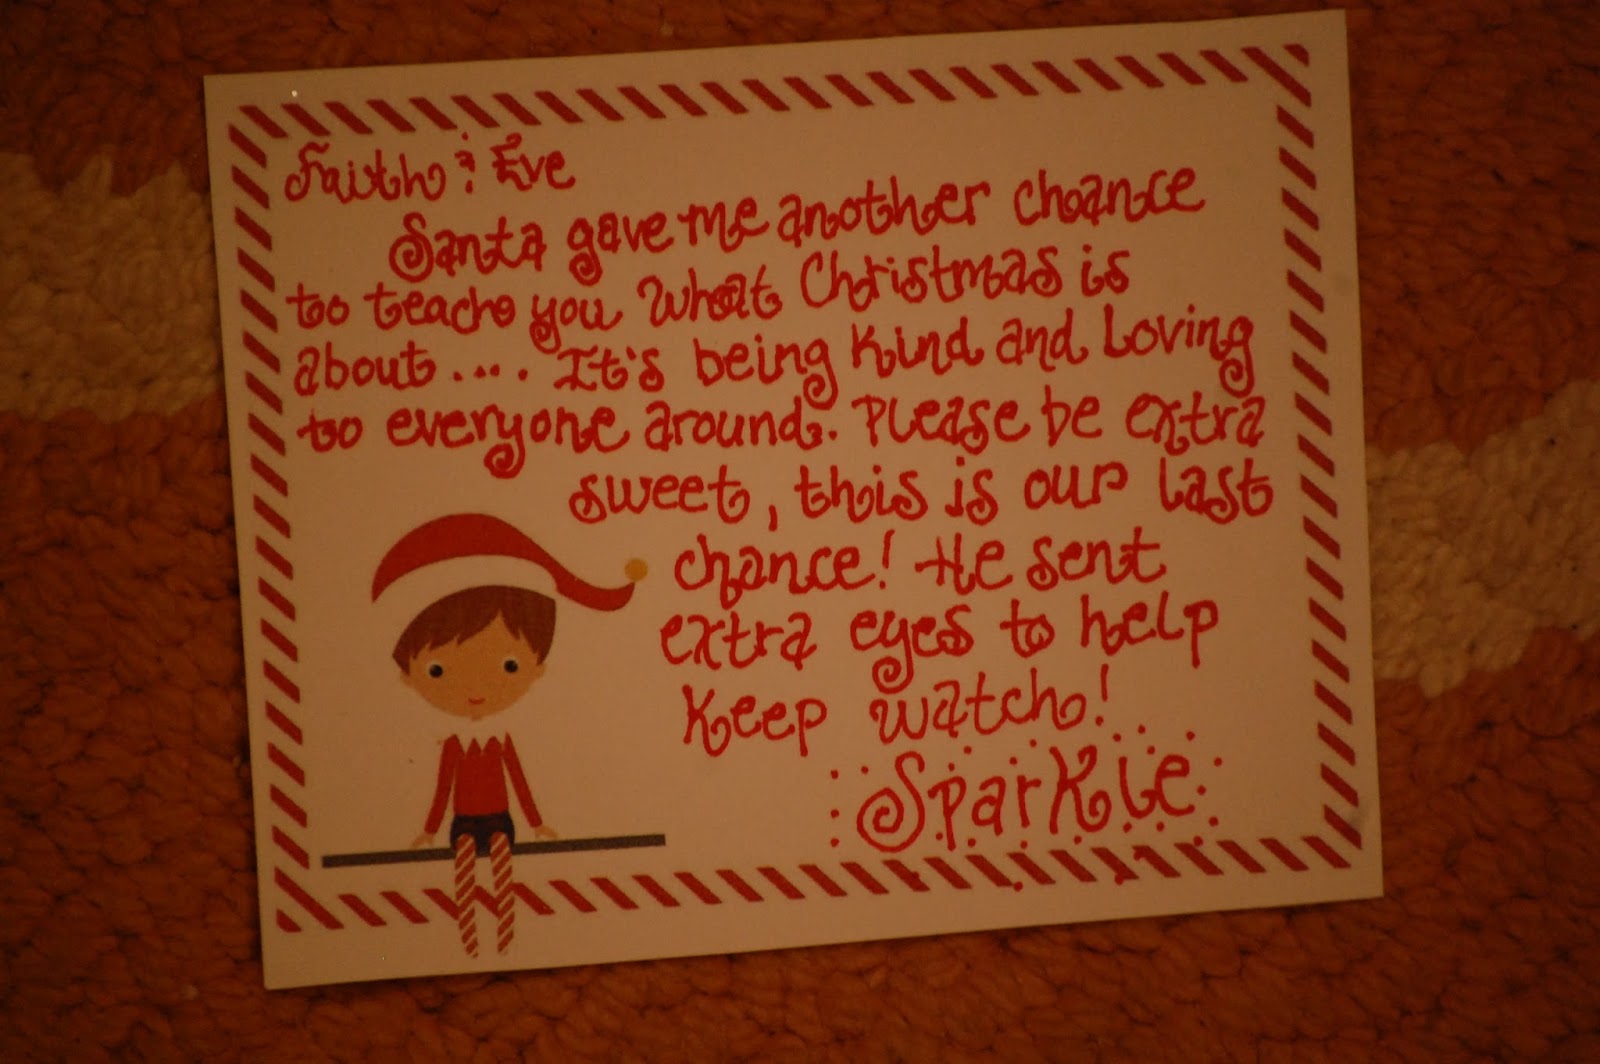 Faith & Eve
Santa gave me another chance
to teach you what Christmas is
about.... It's being kind and Loving
to everyone around. Please be extra
sweet, this is our last
chance! He sent
extra eyes to help
keep watch!
Sparkle